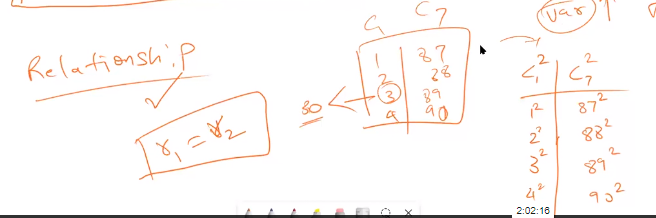 Relationship
r₁ = r₂
C₁ C₇
1 87
2 88
3 89
4 90
var ↑
C₁² C₇²
1² 87²
2² 88²
3² 89²
4² 90²
2:02:16